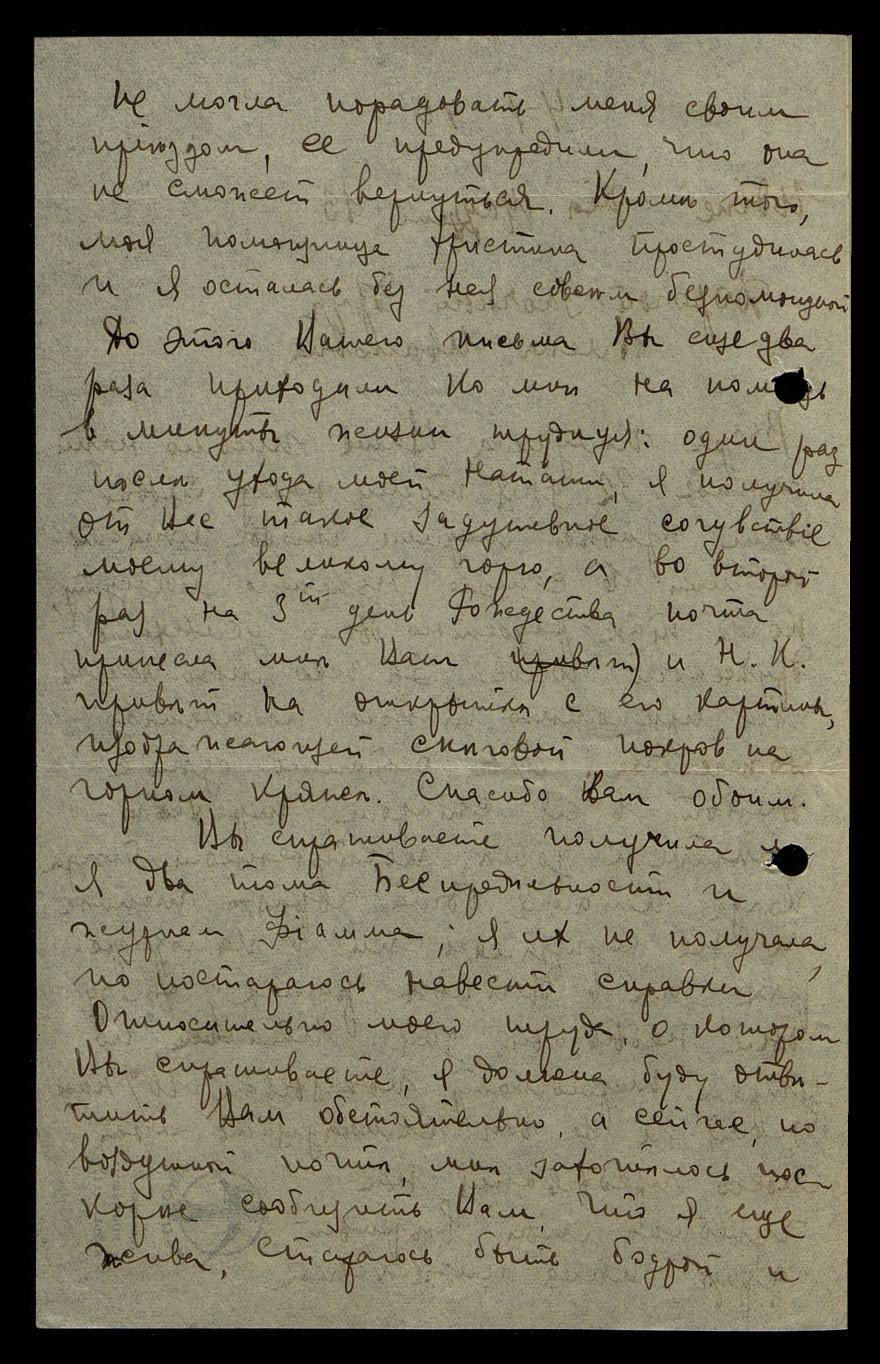 не могла порадовать меня своим
прiѣздом, ее предупредили, что она
не сможет вернуться. Кромѣ того,
моя помощница Христина простудилась
и я осталась без нея совсѣм безпомощной
До этого Вашего письма Вы еще два
раза приходили ко мнѣ на помощь
в минуты жизни трудныя: один раз
послѣ ухода моей Наташи, я получила
от Вас такое задушевное сочувствiе
моему великому горю, а во второй
раз на 3тй день Рождества почта
принесла мнѣ Ваш привѣт) и Н. К.
привѣт на открыткѣ с его картины,
изображающей снѣговой покров на
горном кряжѣ. Спасибо Вам обоим.
Вы спрашиваете получила ли
я два тома Безпредѣльности и
журнал Фiамма; я их не получала,
но постараюсь навести справки
Относительно моего труда, о котором
Вы спрашиваете, я должна буду отвѣ-
тить Вам обстоятельно, а сейчас, по
воздушной почтѣ, мнѣ захотѣлось пос-
корѣе сообщить Вам, что я еще
жива, стараюсь быть бодрой и